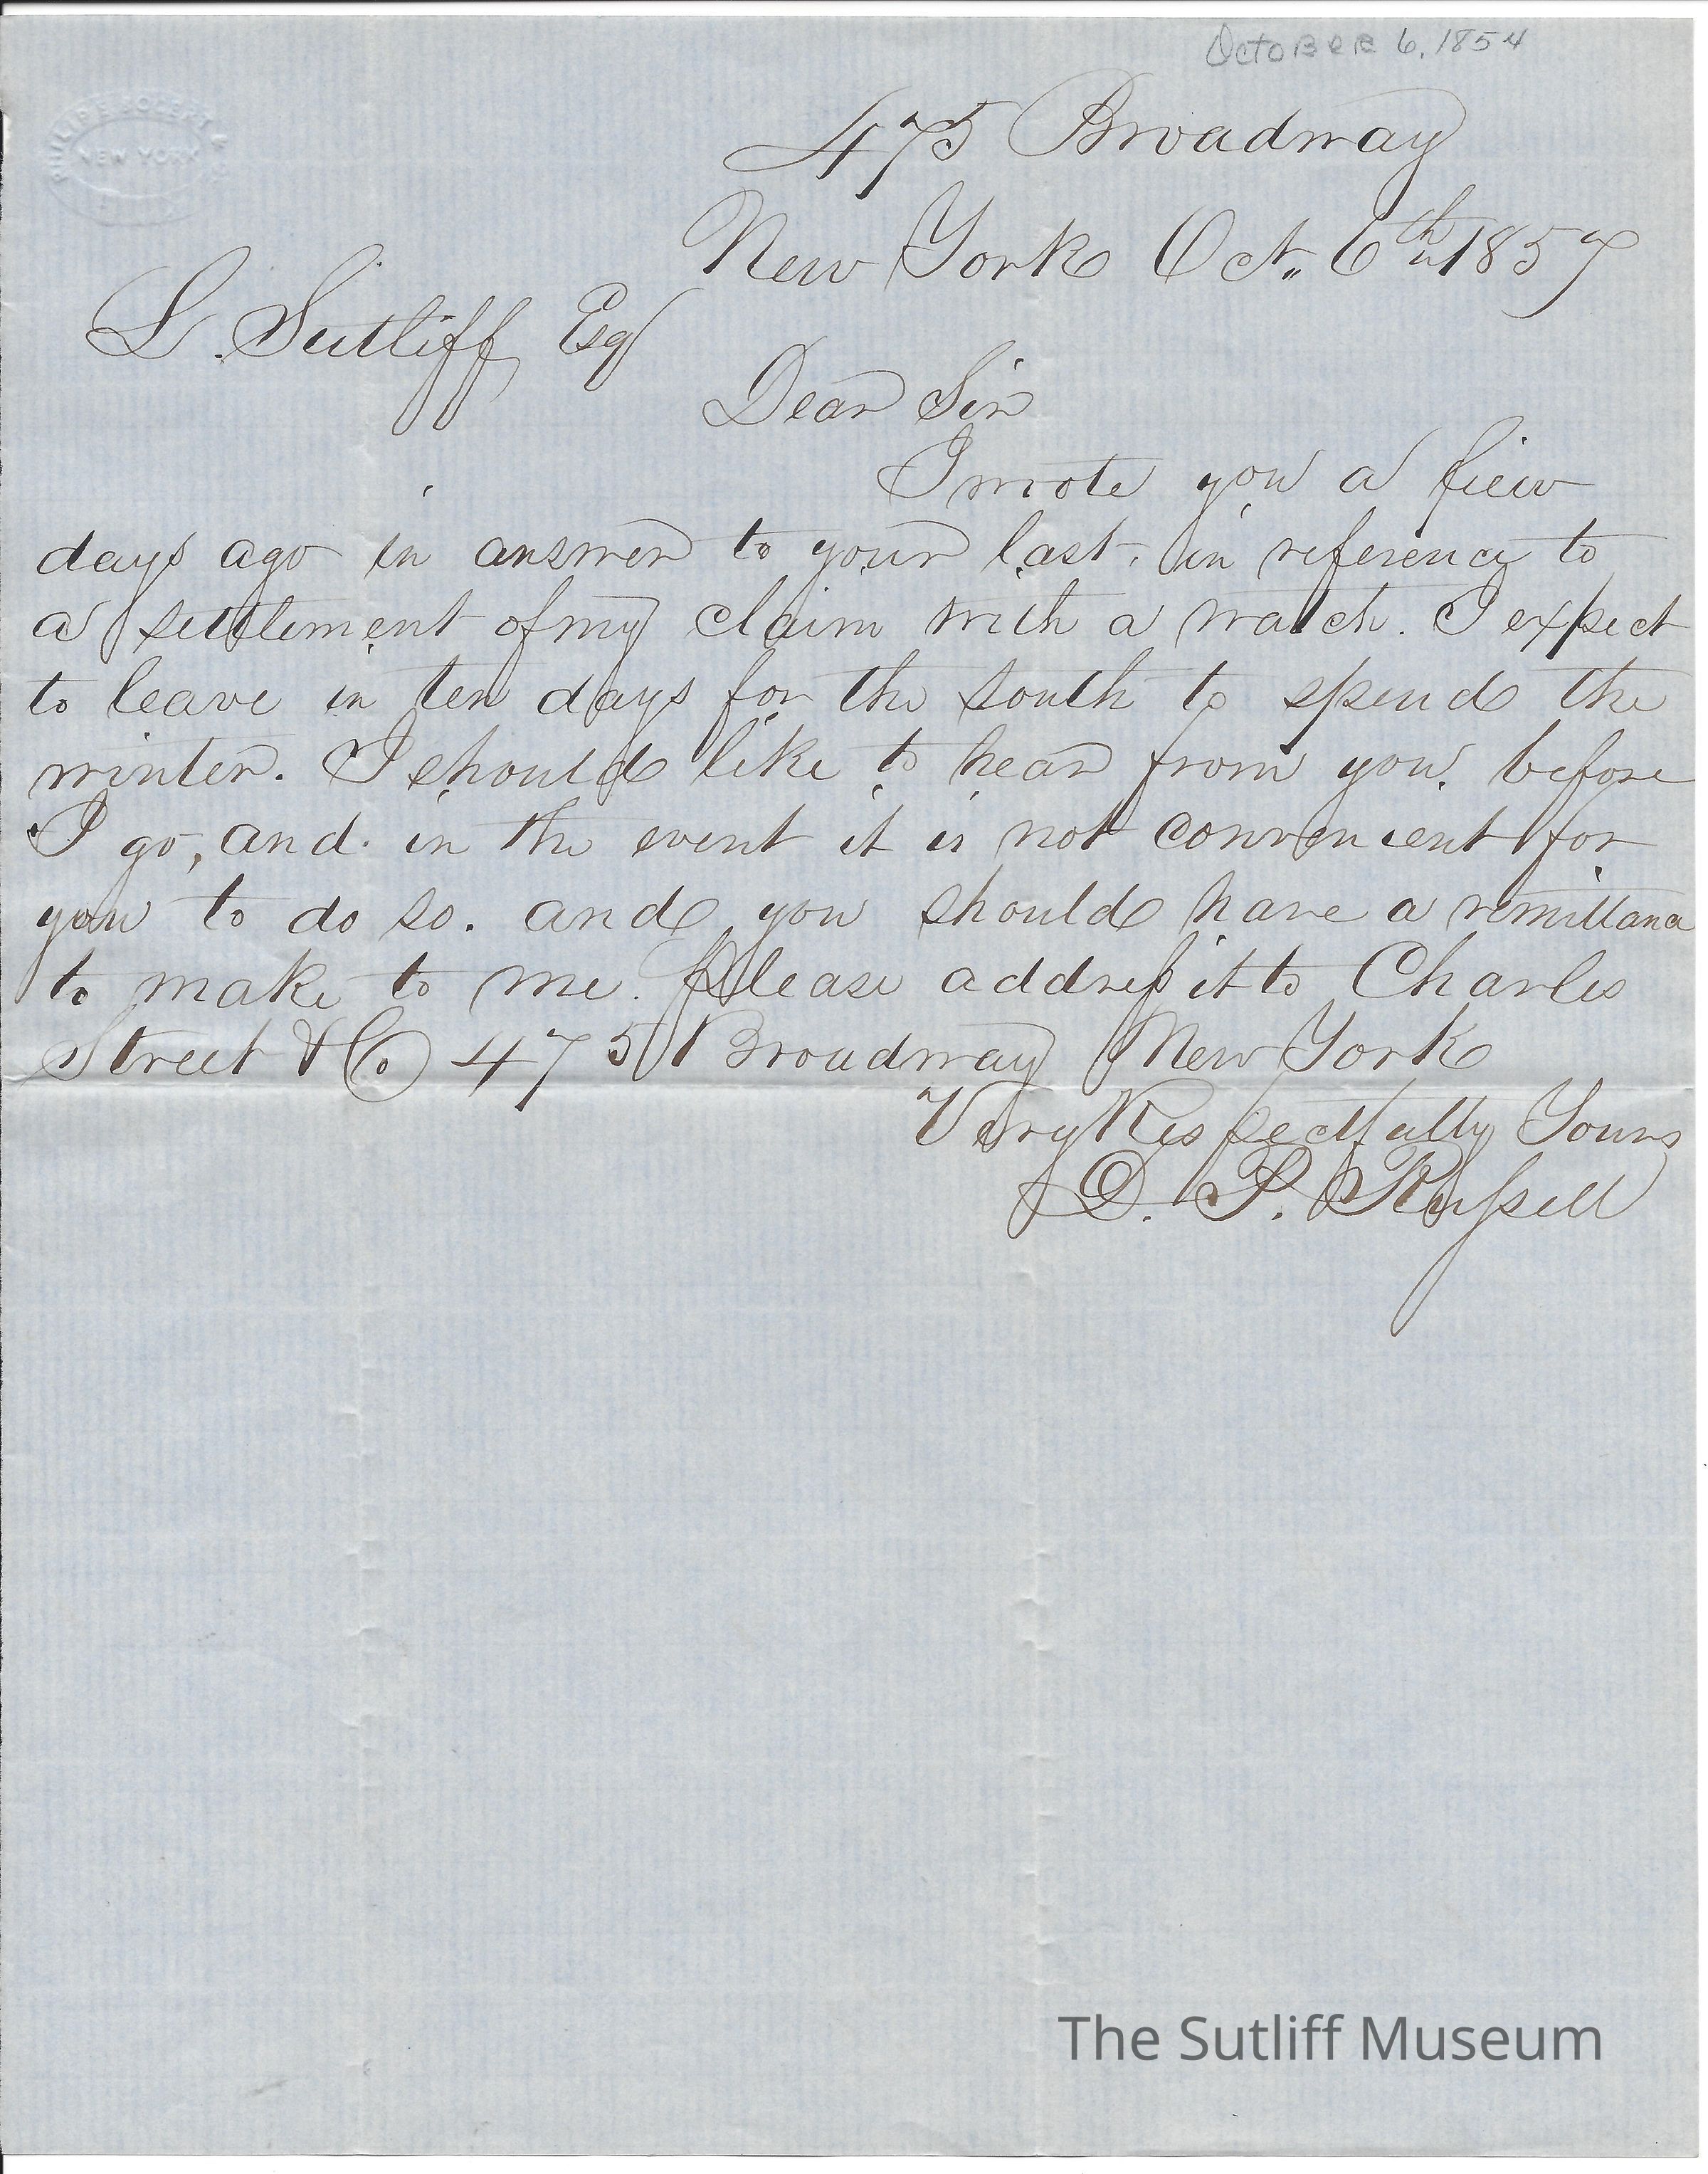 October 6, 1854
475 Broadway
New York Oct. 6th 1857
L. Sutliff Esq
Dear Sir
I wrote you a few
days ago in answer to your last, in reference to
a settlement of my claim with a watch. I expect
to leave in ten days for the south to spend the
winter. I should like to hear from you, before
I go, and in the event it is not convenient for
you to do so. and you should have a remittance
to make to me. Please address it to Charles
Street & Co 475 Broadway New York
Very Respectfully Yours
D. P. Russell
NEW YORK
The Sutliff Museum